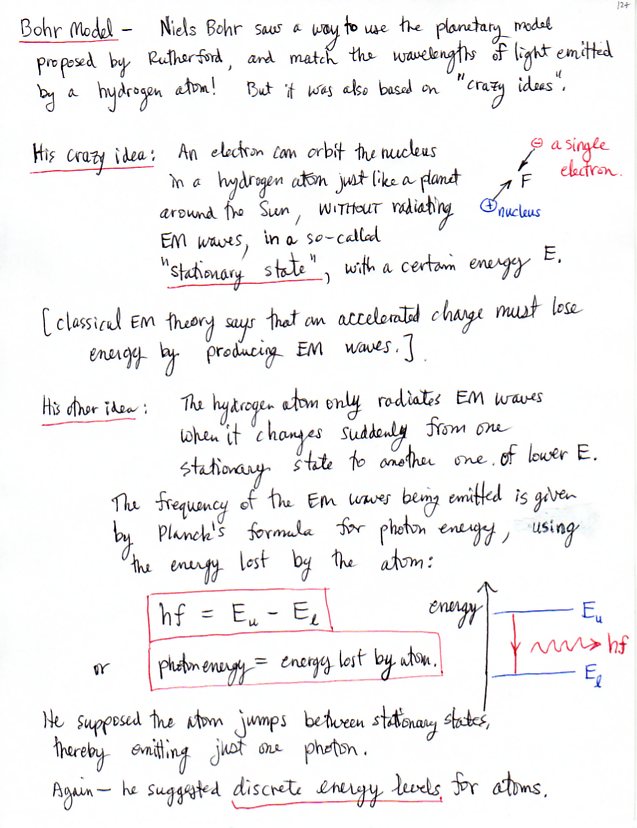 124
Bohr Model – Niels Bohr saw a way to use the planetary model
proposed by Rutherford, and match the wavelengths of light emitted
by a hydrogen atom! But it was also based on "crazy ideas".
His crazy idea: An electron can orbit the nucleus
in a hydrogen atom just like a planet
around the Sun, WITHOUT radiating
EM waves, in a so-called
"stationary state", with a certain energy E.
⊖ a single
electron.
F
⊕ nucleus
[classical EM theory says that an accelerated charge must lose
energy by producing EM waves.]
His other idea: The hydrogen atom only radiates EM waves
when it changes suddenly from one
stationary state to another one of lower E.
The frequency of the EM waves being emitted is given
by Planck's formula for photon energy, using
the energy lost by the atom:
hf = Eᵤ - Eₗ
or photon energy = energy lost by atom.
energy
Eᵤ
hf
Eₗ
He supposed the atom jumps between stationary states,
thereby emitting just one photon.
Again – he suggested discrete energy levels for atoms.